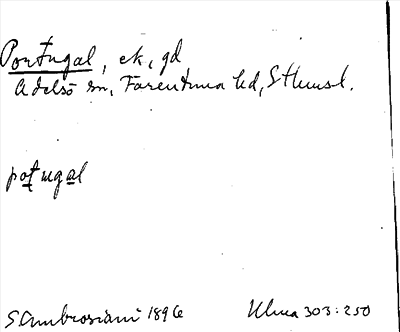 Portugal, ek, gd
Adelsö sn, Färentuna hd, Sthmsl.
potugal
S Ambrosiani 1896
Ulma 303:250